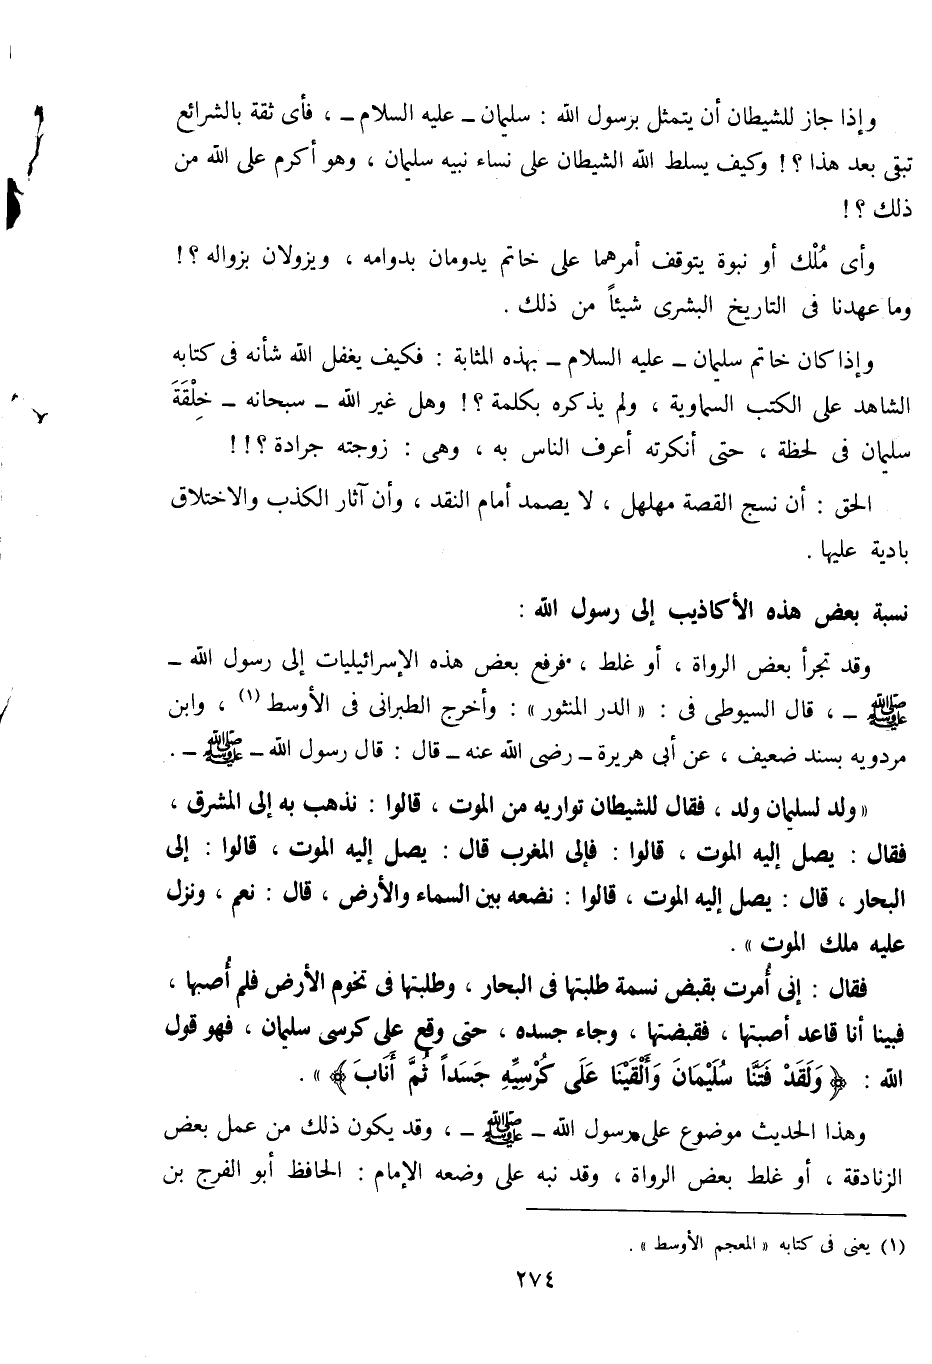 وإذا جاز للشيطان أن يتمثل برسول الله : سليمان ــ عليه السلام ــ ، فأى ثقة بالشرائع
تبقى بعد هذا ؟! وكيف يسلط الله الشيطان على نساء نبيه سليمان ، وهو أكرم على الله من
ذلك ؟!
وأى مُلْك أو نبوة يتوقف أمرهما على خاتم يدومان بدوامه ، ويزولان بزواله ؟!
وما عهدنا فى التاريخ البشرى شيئاً من ذلك .
وإذا كان خاتم سليمان ــ عليه السلام ــ بهذه المثابة : فكيف يغفل الله شأنه فى كتابه
الشاهد على الكتب السماوية ، ولم يذكره بكلمة ؟! وهل غير الله ــ سبحانه ــ خِلْقَةَ
سليمان فى لحظة ، حتى أنكرته أعرف الناس به ، وهى : زوجته جرادة ؟!!
الحق : أن نسج القصة مهلهل ، لا يصمد أمام النقد ، وأن آثار الكذب والاختلاق
بادية عليها .
نسبة بعض هذه الأكاذيب إلى رسول الله :
وقد تجرأ بعض الرواة ، أو غلط ، فرفع بعض هذه الإسرائيليات إلى رسول الله ــ
ﷺ ــ ، قال السيوطى فى : « الدر المنثور » : وأخرج الطبرانى فى الأوسط (١) ، وابن
مردويه بسند ضعيف ، عن أبى هريرة ــ رضى الله عنه ــ قال : قال رسول الله ــ ﷺ ــ .
« ولد لسليمان ولد ، فقال للشيطان تواريه من الموت ، قالوا : نذهب به إلى المشرق ،
فقال : يصل إليه الموت ، قالوا : فإلى المغرب قال : يصل إليه الموت ، قالوا : إلى
البحار ، قال : يصل إليه الموت ، قالوا : نضعه بين السماء والأرض ، قال : نعم ، ونزل
عليه ملك الموت » .
فقال : إنى أُمرت بقبض نسمة طلبتها فى البحار ، وطلبتها فى تخوم الأرض فلم أُصبها ،
فبينا أنا قاعد أصبتها ، فقبضتها ، وجاء جسده ، حتى وقع على كرسى سليمان ، فهو قول
الله : ﴿ وَلَقَدْ فَتَنَّا سُلَيْمَانَ وَأَلْقَيْنَا عَلَى كُرْسِيِّهِ جَسَداً ثُمَّ أَنَابَ ﴾ » .
وهذا الحديث موضوع على رسول الله ــ ﷺ ــ ، وقد يكون ذلك من عمل بعض
الزنادقة ، أو غلط بعض الرواة ، وقد نبه على وضعه الإمام : الحافظ أبو الفرج بن
(١) يعنى فى كتابه « المعجم الأوسط » .
٢٧٤